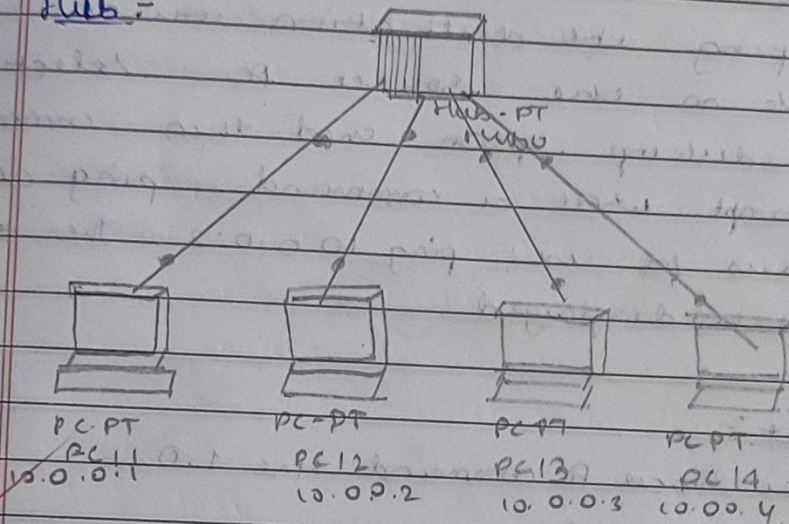 Hub :-
Hub - PT
Hub0
PC-PT
PC11
10.0.0.1
PC-PT
PC12
10.0.0.2
PC PT
PC13
10.0.0.3
PC PT
PC14
10.00.4